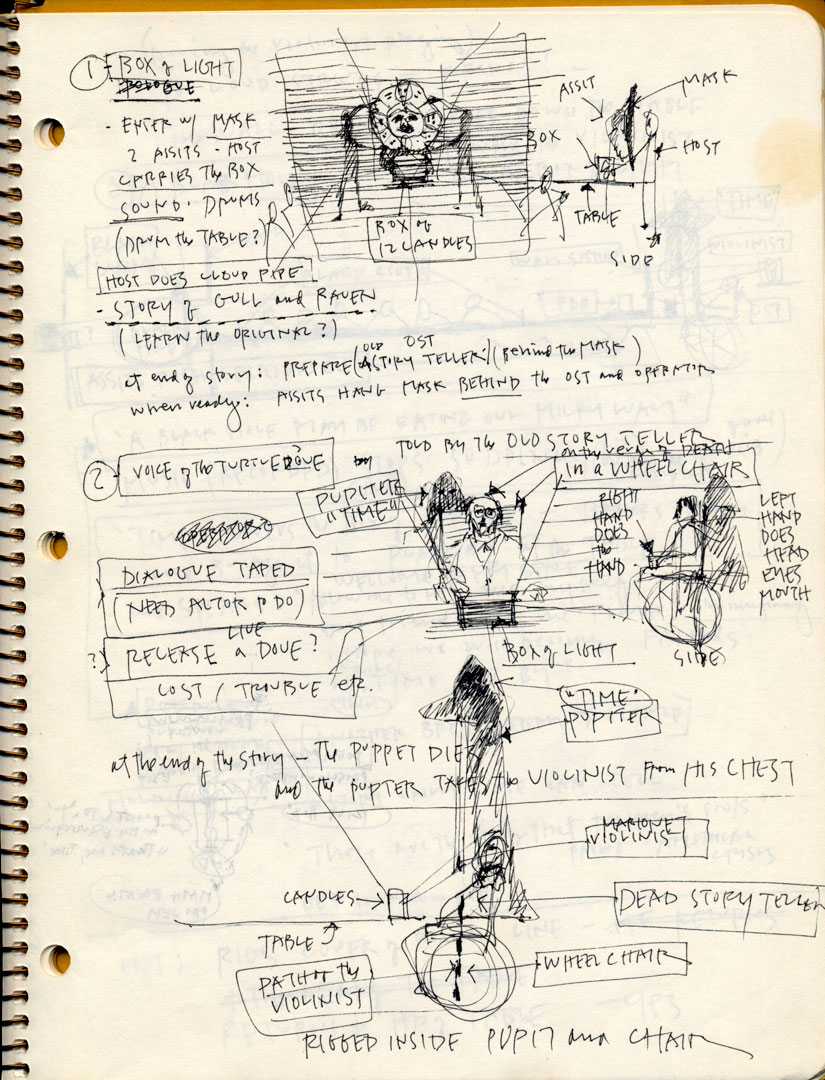 1 - BOX of LIGHT
- ENTER w/ MASK
2 ASSITS - HOST
CARRIES the BOX
SOUND: DRUMS
(DRUM the TABLE?)
HOST DOES CLOUD PIPE
- STORY of GULL and RAVEN
(LEARN the ORIGINAL?)
BOX of
12 CANDLES
ASSIT
MASK
BOX
HOST
TABLE
SIDE
at end of story: PREPARE (OLD STORY TELLER:) (behind the MASK)
OST
when ready: ASSITS HANG MASK BEHIND the OST and OPERATOR
2 - VOICE of the TURTLE DOVE?
TOLD BY the OLD STORY TELLER
on the verge of DEATH
in a WHEEL CHAIR
PUPITER
"TIME"
RIGHT
HAND
DOES
the
HAND
LEFT
HAND
DOES
HEAD
EYES
MOUTH
SIDE
DIALOGUE TAPED
(NEED ACTOR to DO)
LIVE
?) RELEASE a DOVE?
COST / TROUBLE etc.
BOX of LIGHT
"TIME"
PUPITER
at the end of the story - the PUPPET DIES
and the PUPTER TAKES the VIOLINIST FROM HIS CHEST
MARIONET
VIOLINIST
CANDLES
DEAD STORY TELLER
TABLE
WHEEL CHAIR
PATH of the
VIOLINIST
RIGGED INSIDE PUPIT and CHAIR